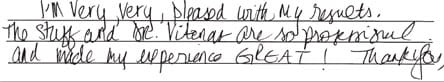 I'm very very, pleased with my results.
The staff and Dr. Vitenas are so professional
and made my experience GREAT! Thank you,